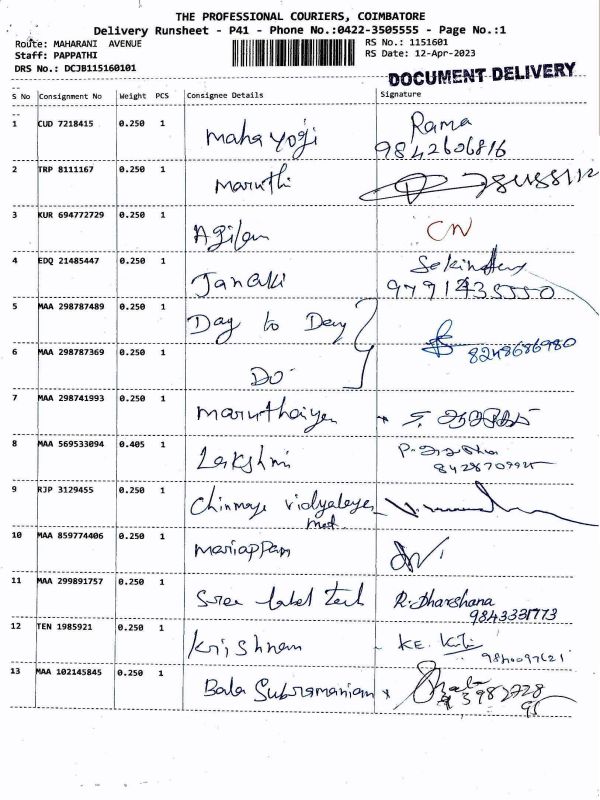 THE PROFESSIONAL COURIERS, COIMBATORE
Delivery Runsheet - P41 - Phone No.:0422-3505555 - Page No.:1
Route: MAHARANI AVENUE RS No.: 1151601
Staff: PAPPATHI RS Date: 12-Apr-2023
DRS No.: DCJB115160101
DOCUMENT DELIVERY
S No Consignment No Weight PCS Consignee Details Signature
1 CUD 7218415 0.250 1 Maha yogi Rama
9842606816
2 TRP 8111167 0.250 1 Maruthi
3 KUR 694772729 0.250 1 Agilan CN
4 EDQ 21485447 0.250 1 Janaki
5 MAA 298787489 0.250 1 Day to Day
8248686980
6 MAA 298787369 0.250 1 Do
7 MAA 298741993 0.250 1 Maruthaiyen
8 MAA 569533094 0.405 1 Lakshmi
9 RJP 3129455 0.250 1 Chinmaya Vidyalaya
mat
10 MAA 859774406 0.250 1 Mariappan
11 MAA 299891757 0.250 1 Sree label Tech R. Dharshana
9843331773
12 TEN 1985921 0.250 1 Krishnan KE.
9840097621
13 MAA 102145845 0.250 1 Bala Subramaniam x